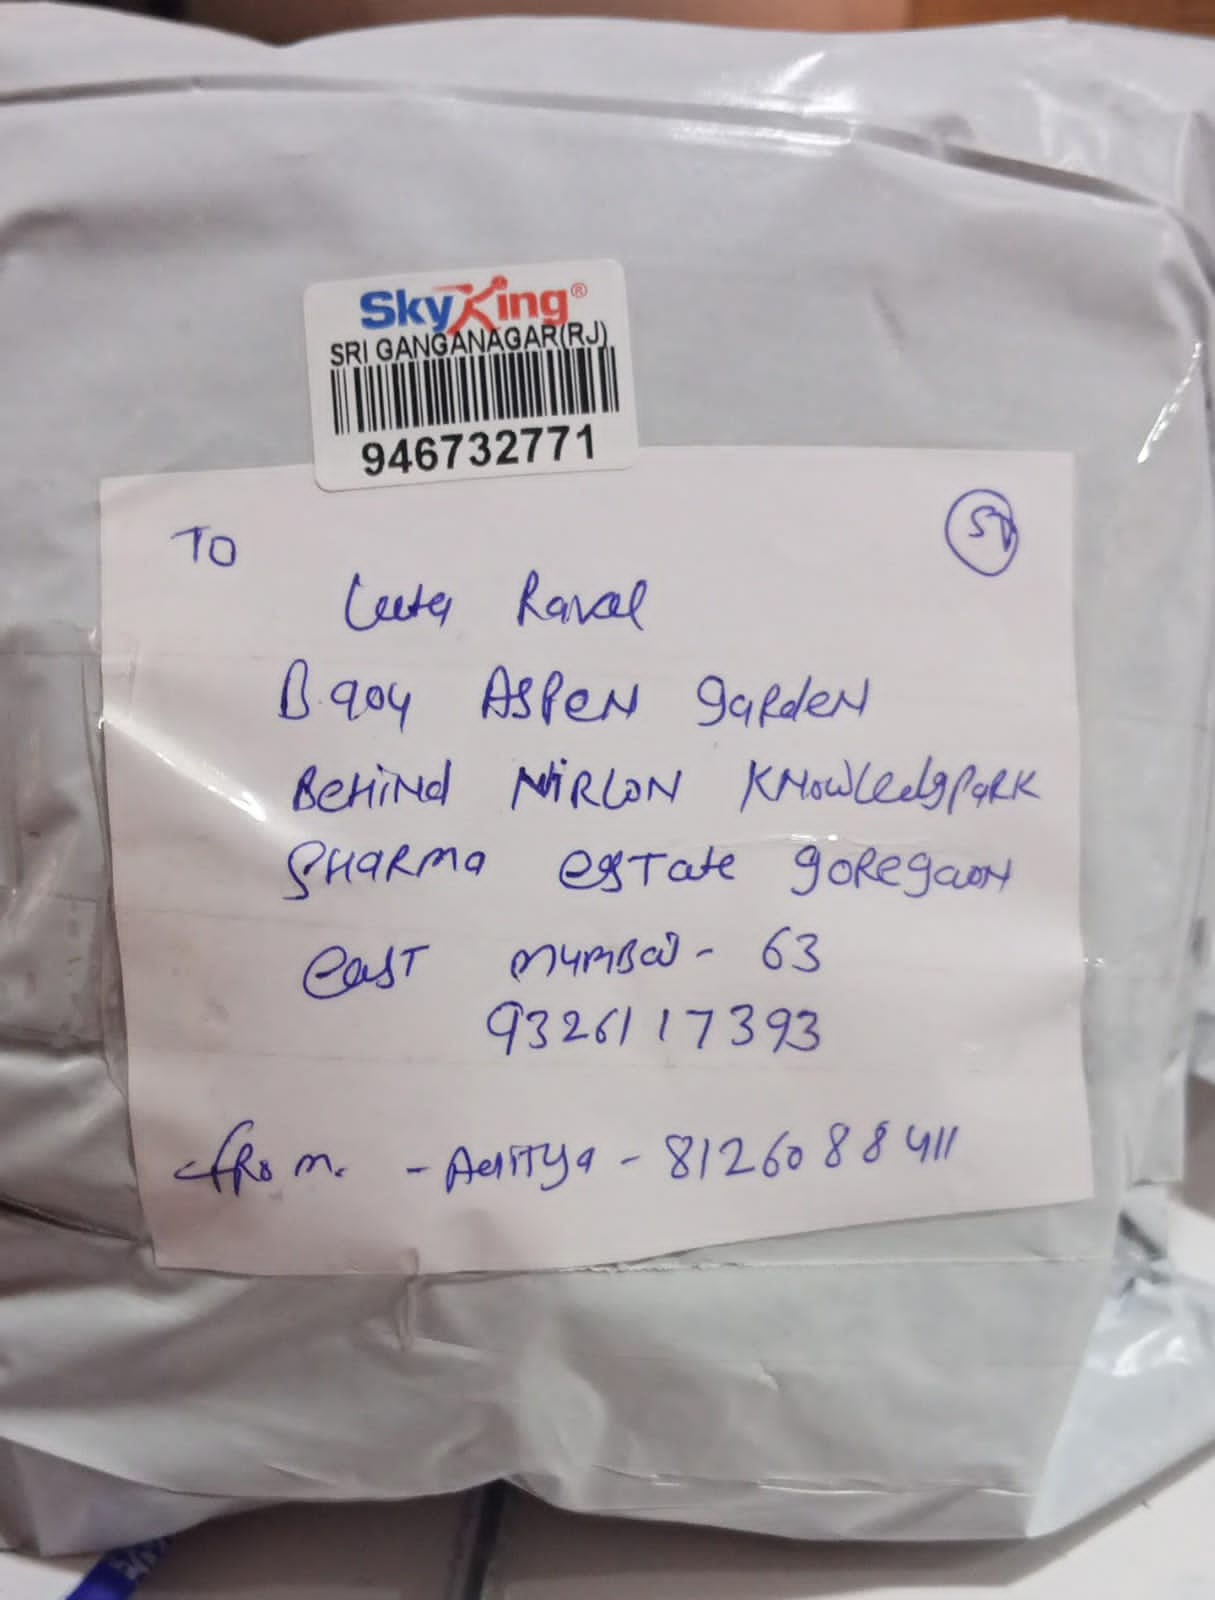 SkyKing®
SRI GANGANAGAR(RJ)
946732771
TO
Raval
B.904 ASPeN garden
BeHiNd NiRLON KNowledgpaRK
SHaRma esTate goRegaon
east mumbai - 63
9326117393
from. - Aditya - 8126088411